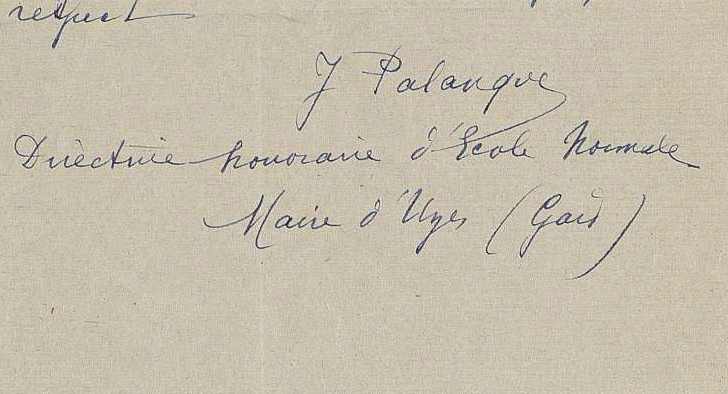 respect
J Palangre
Directrice honoraire d'Ecole Normale
Maire d'Uzes (Gard)